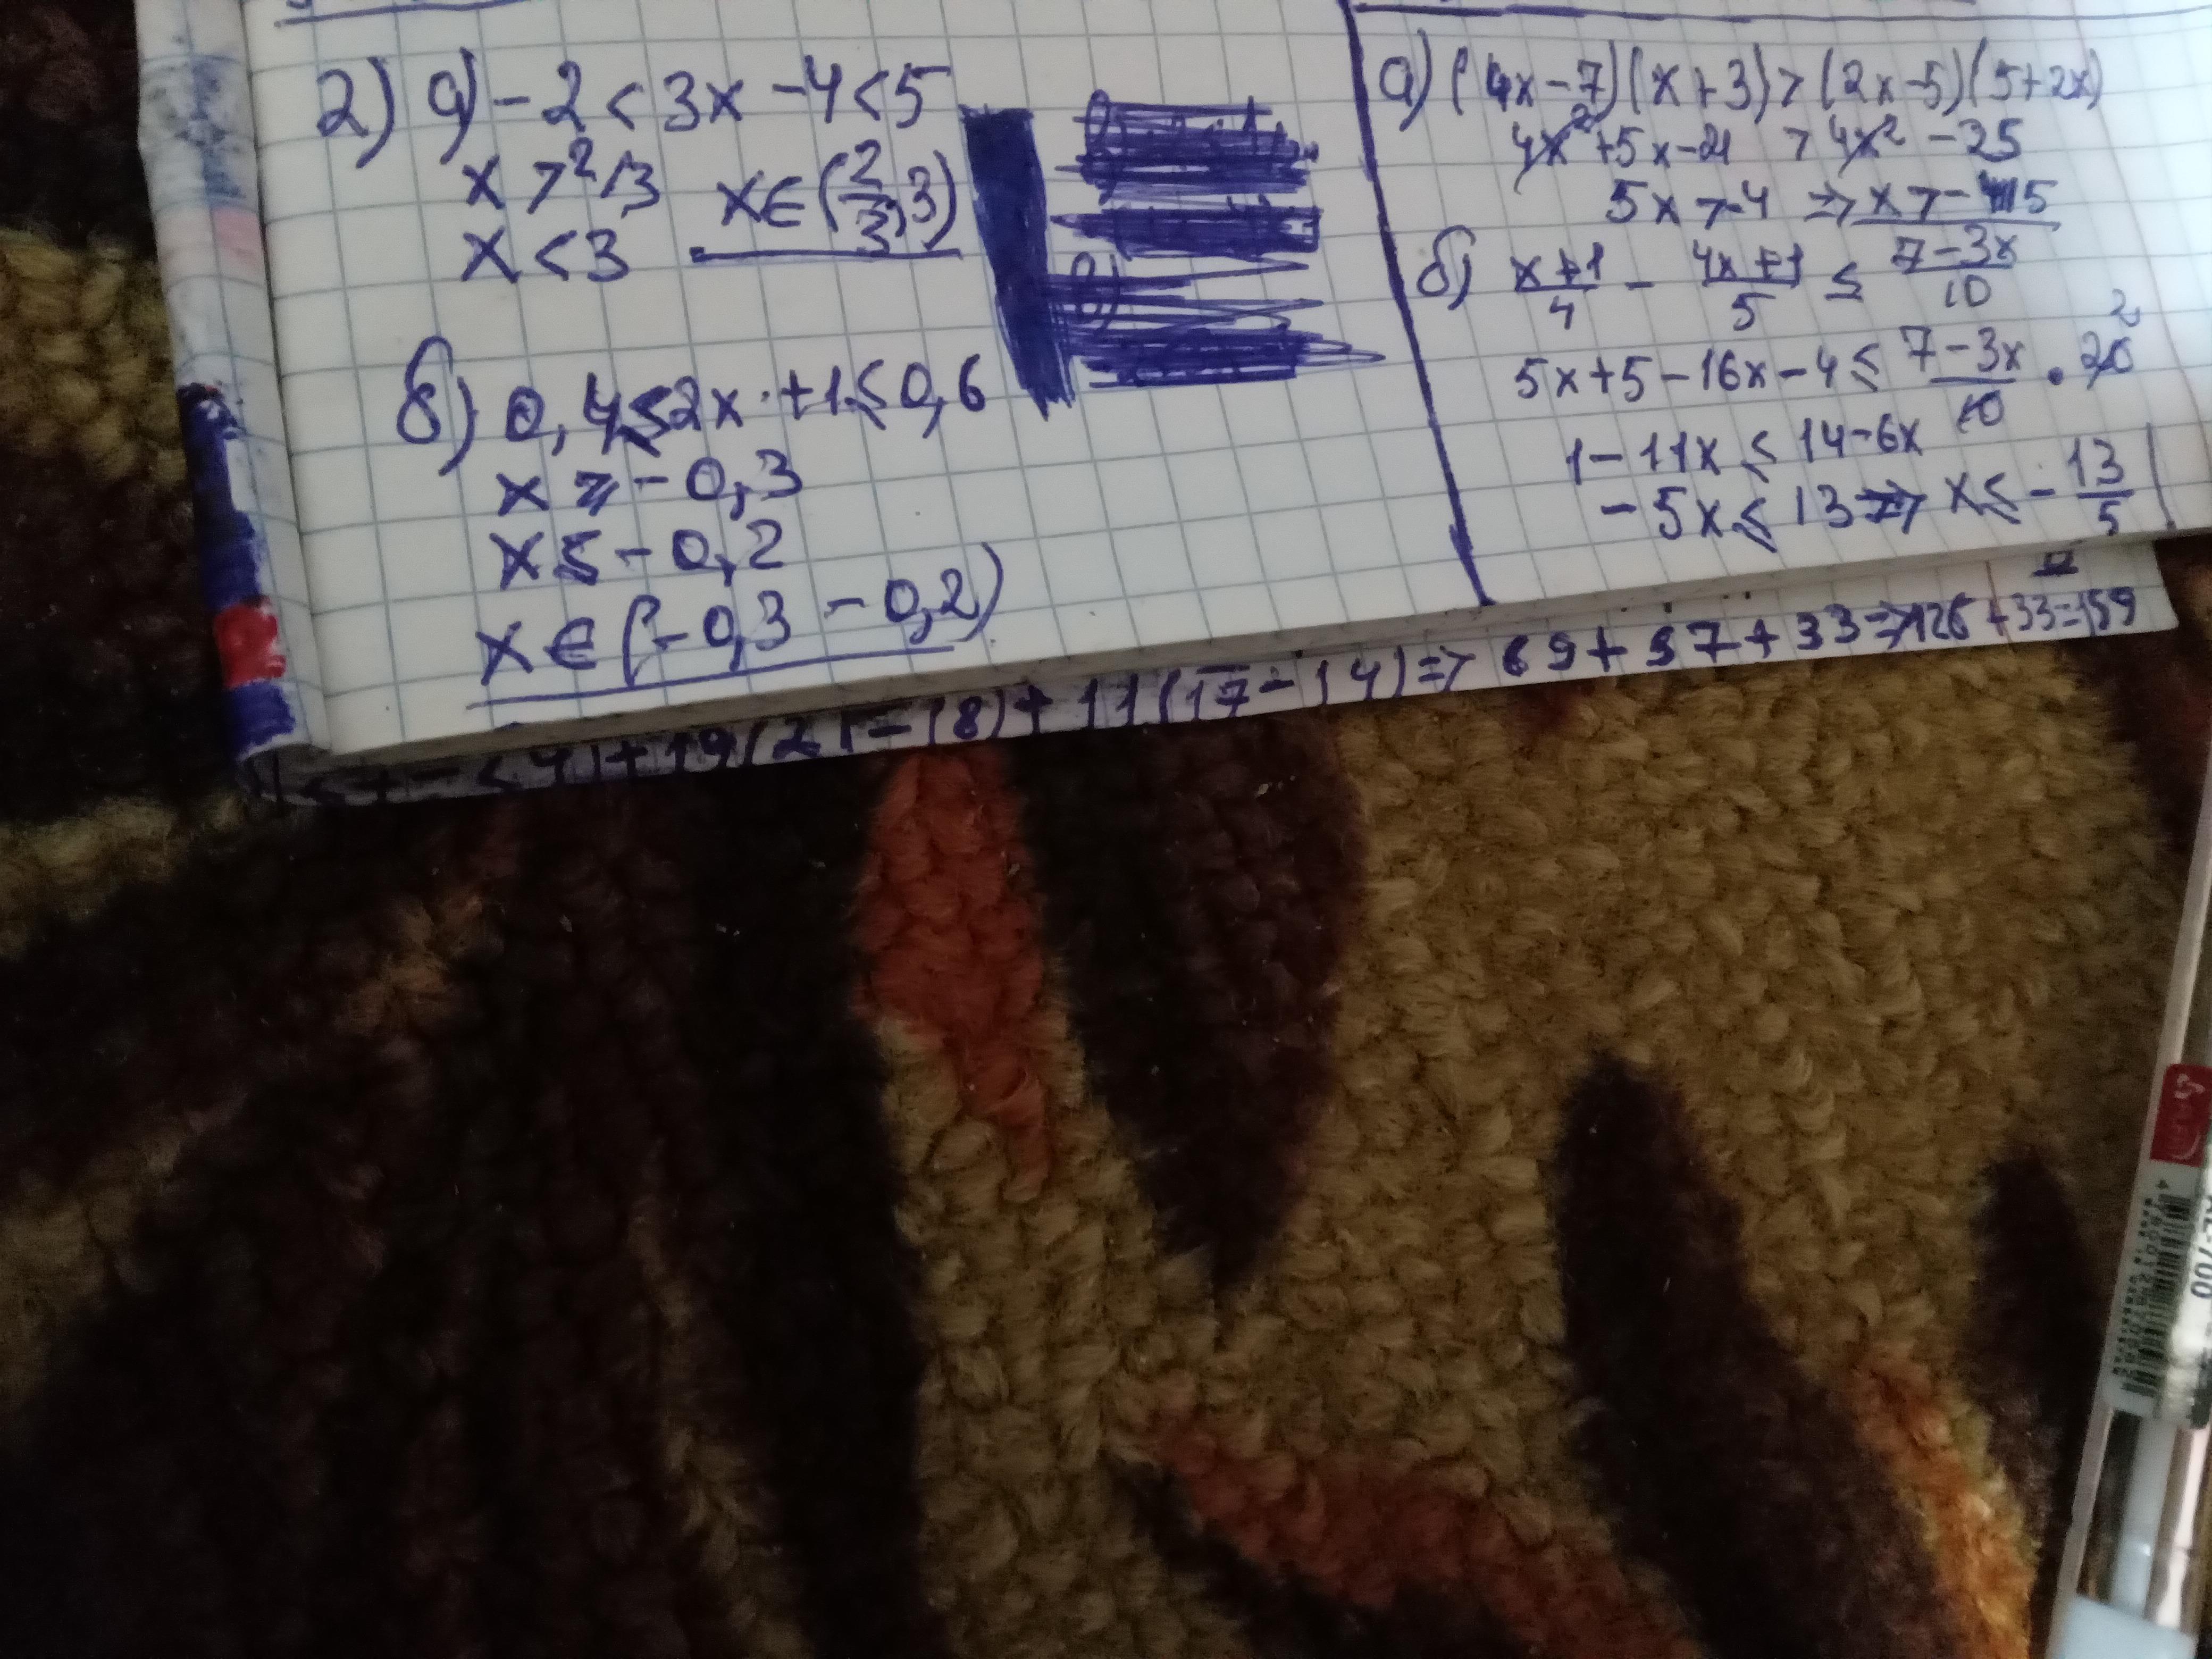 2) а) -2 < 3x - 4 < 5
x > 2/3
x < 3 x ∈ (2/3, 3)
б) 0,4 ≤ 2x + 1 ≤ 0,6
x ≥ -0,3
x ≤ -0,2
x ∈ (-0,3 -0,2)
а) (4x-7)(x+3) > (2x-5)(5+2x)
4x² + 5x - 21 > 4x² - 25
5x > -4 => x > -4/5
б) (x+1)/4 - (4x+1)/5 ≤ (7-3x)/10
5x + 5 - 16x - 4 ≤ (7-3x)/10 · 20 2
1 - 11x ≤ 14 - 6x
-5x ≤ 13 => x ≤ -13/5
+ 19(21-18) + 11(17-14) => 69 + 57 + 33 => 126 + 33 = 159